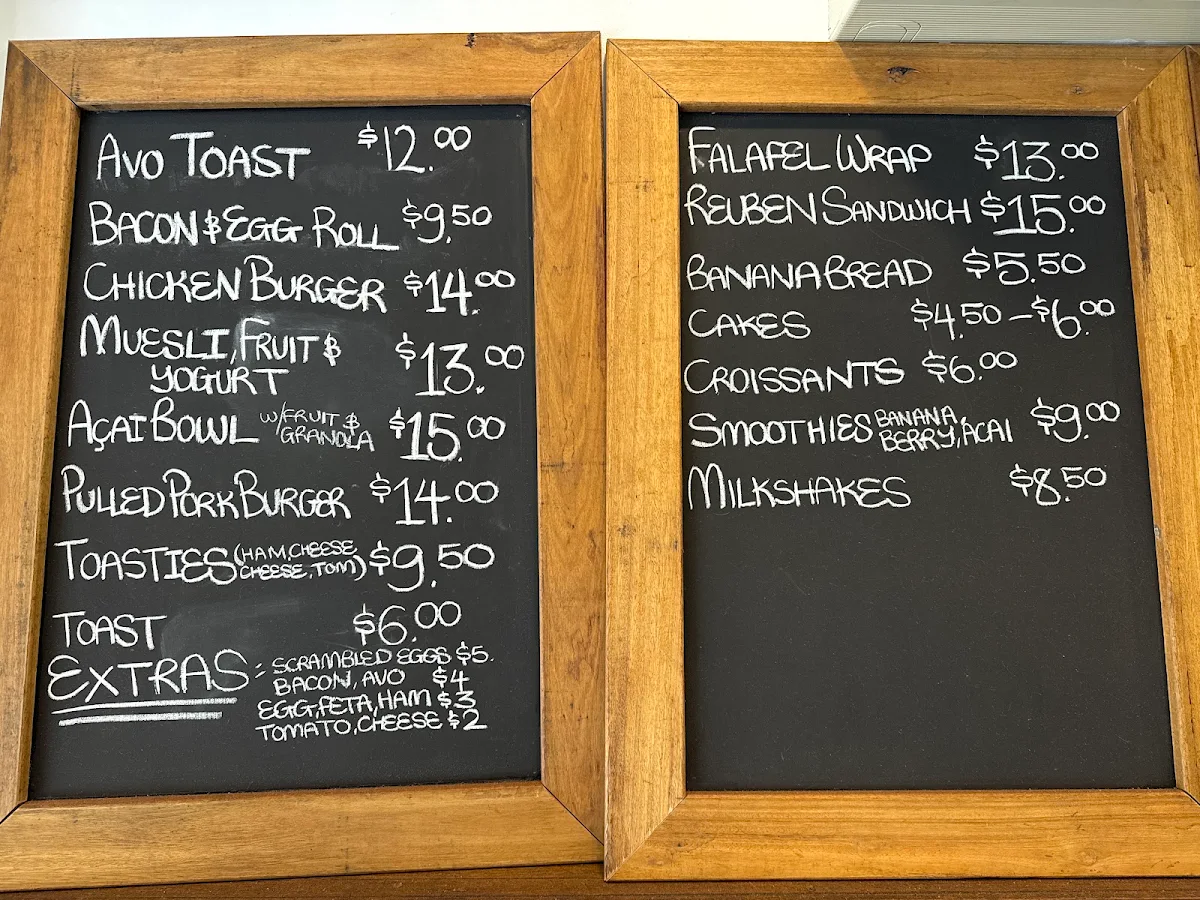 AVO TOAST $12.00
BACON & EGG ROLL $9.50
CHICKEN BURGER $14.00
MUESLI, FRUIT &
YOGURT $13.00
AÇAI BOWL W/FRUIT & GRANOLA $15.00
PULLED PORK BURGER $14.00
TOASTIES (HAM, CHEESE CHEESE, TOM) $9.50
TOAST $6.00
EXTRAS - SCRAMBLED EGGS $5.
BACON, AVO $4
EGG, FETA, HAM $3
TOMATO, CHEESE $2
FALAFEL WRAP $13.00
REUBEN SANDWICH $15.00
BANANA BREAD $5.50
CAKES $4.50 - $6.00
CROISSANTS $6.00
SMOOTHIES BANANA, BERRY, AÇAI $9.00
MILKSHAKES $8.50